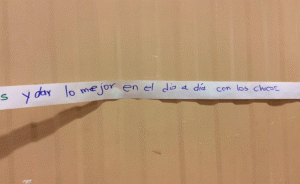 s y dar lo mejor en el dia a dia con los chicos